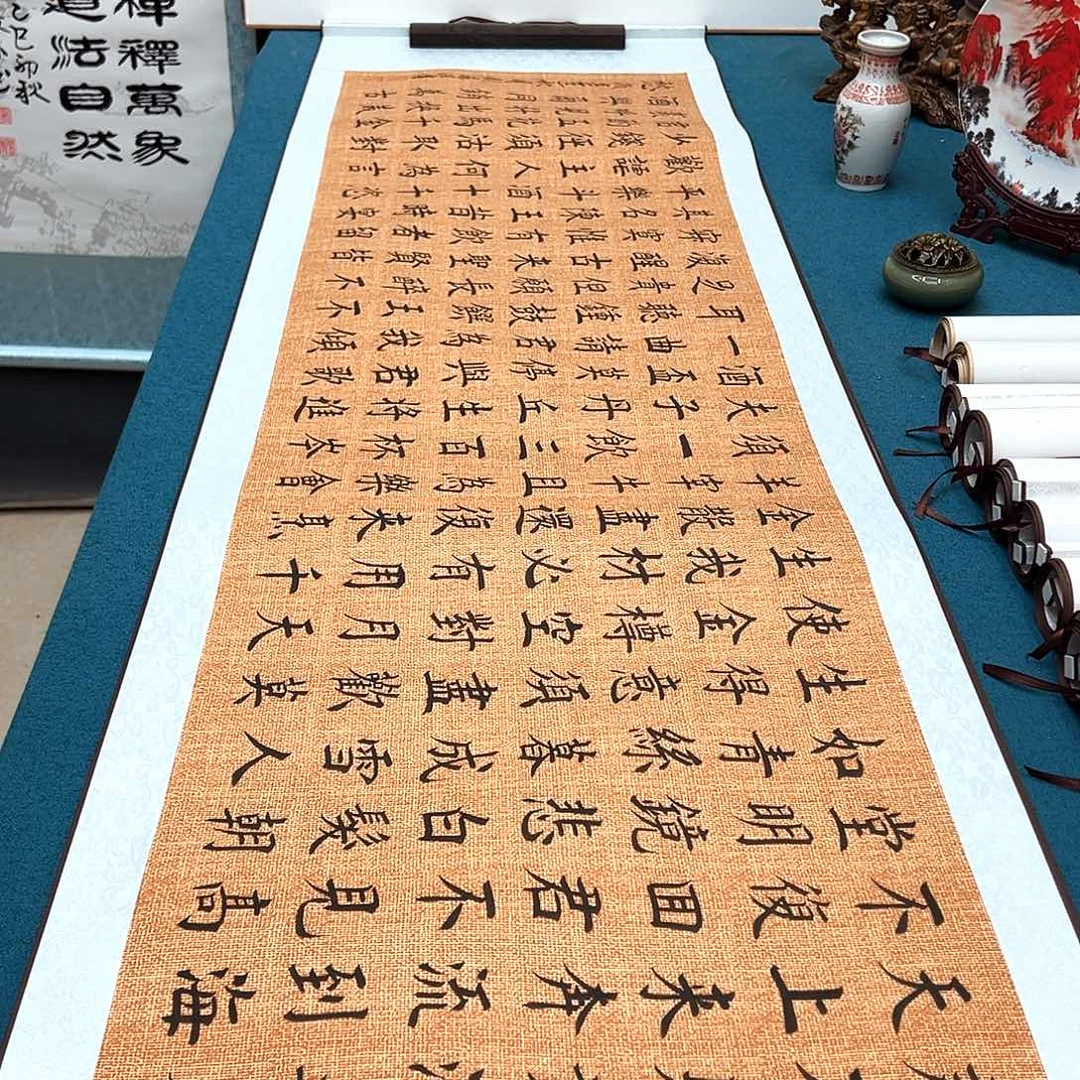 禪釋萬象
道法自然
乙巳初秋
天上來奔流到海
不復回君不見高
堂明鏡悲白髮朝
如青絲暮成雪人
生得意須盡歡莫
使金樽空對月天
生我材必有用千
金散盡還復來烹
羊宰牛且為樂會
須一飲三百杯岑
夫子丹丘生將進
酒盃莫停與君歌
一曲請君為我傾
耳聽鐘鼓饌玉不
足貴但願長醉不
復醒古來聖賢皆
寂寞惟有飲者留
其名陳王昔時宴
平樂斗酒十千恣
歡謔主人何為言
少錢徑須沽取對